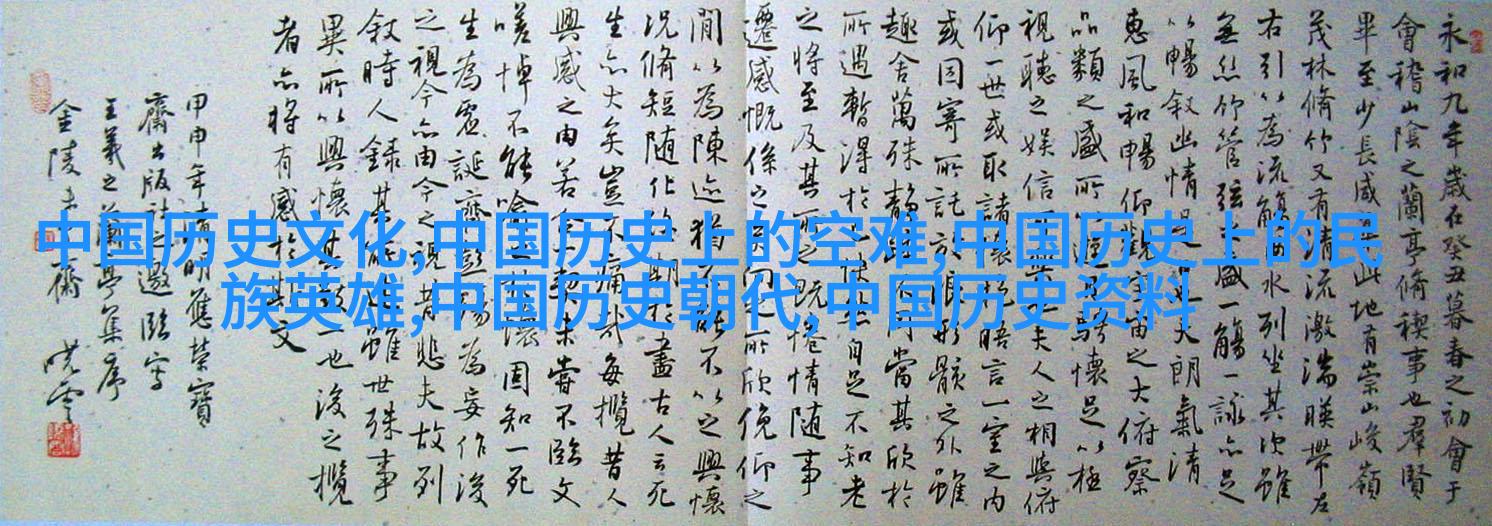 永和九年歲在癸丑暮春之初會于
會稽山陰之蘭亭脩稧事也羣賢
畢至少長咸集此地有崇山峻嶺
茂林脩竹又有清流激湍暎帶左
右引以為流觴曲水列坐其次雖
無絲竹管弦之盛一觴一詠亦足
以暢叙幽情是日也天朗氣清
惠風和暢仰觀宇宙之大俯察
品類之盛所以遊目騁懷足以極
視聽之娛信可樂也夫人之相與俯
仰一世或取諸懷抱晤言一室之內
或因寄所託放浪形骸之外雖
趣舍萬殊靜躁不同當其欣於
所遇暫得於己快然自足不知老
之將至及其所之既惓情隨事
遷感慨係之矣向之所欣俛仰之
間以為陳迹猶不能不以之興懷
況脩短隨化終期於盡古人云死
生亦大矣豈不痛哉每攬昔人
興感之由若合一契未嘗不臨文
嗟悼不能喻之於懷固知一死
生為虛誕齊彭殤為妄作後
之視今亦由今之視昔悲夫故列
叙時人錄其所述雖世殊事
異所以興懷其致一也後之攬
者亦將有感於斯文
甲申年清明應榮寶
齋出版社之邀臨寫
王羲之蘭亭集序
金陵
中国历史文化,中国历史上的空难,中国历史上的民
族英雄,中国历史朝代,中国历史资料